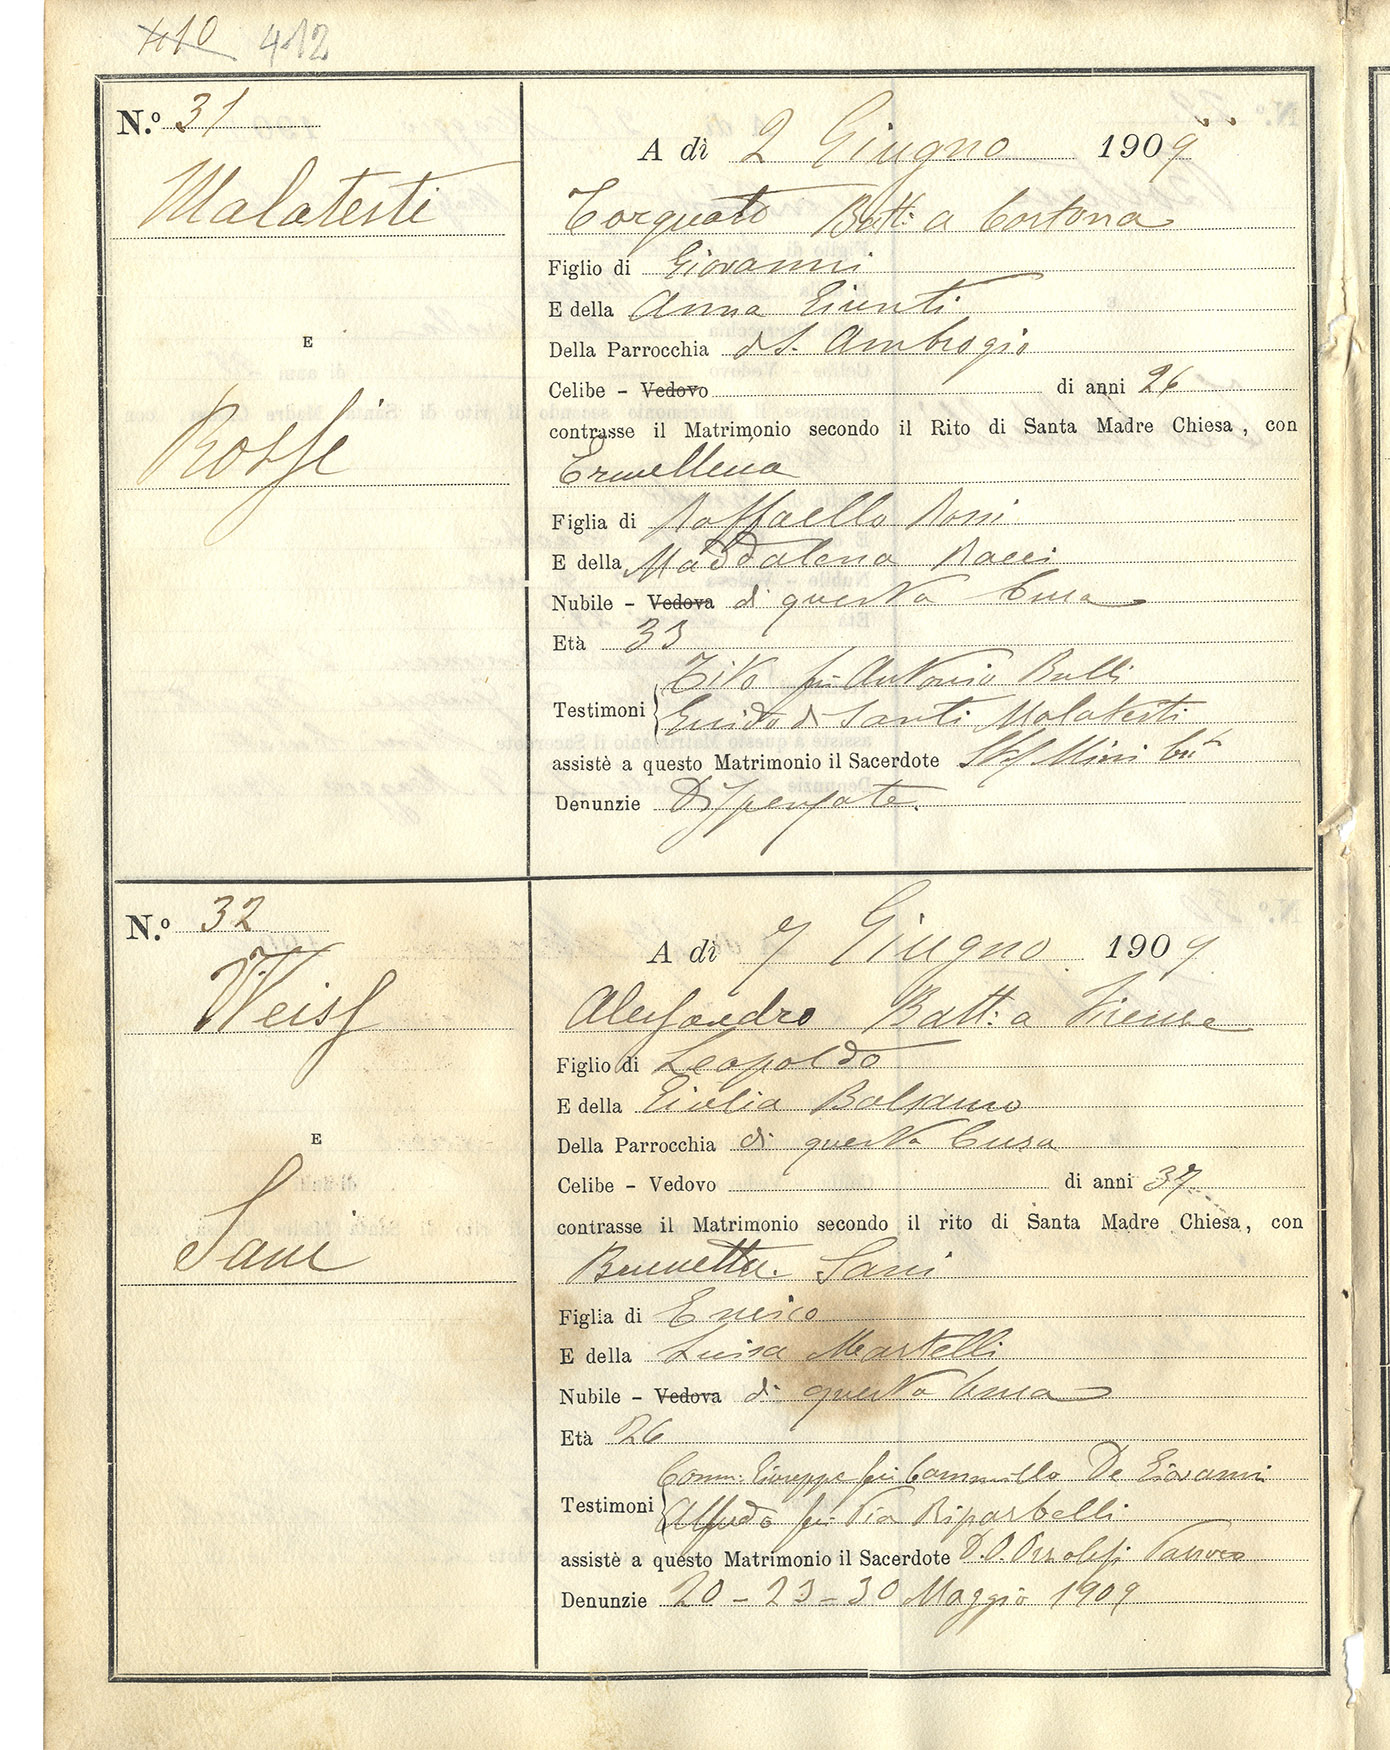 410 412
N.º 31
Malatesti
E
Rossi
A dì 2 Giugno 1909
Torquato Batt: a Cortona
Figlio di Giovanni
E della Anna
Della Parrocchia di S. Ambrogio
Celibe - Vedovo di anni 26
contrasse il Matrimonio secondo il Rito di Santa Madre Chiesa, con
Ermellina
Figlia di Raffaello Rossi
E della Maddalena Bacci
Nubile - Vedova di questa Cura
Età 33
Testimoni Tito fu Antonio Bulli
Guido di Santi Malatesti
assistè a questo Matrimonio il Sacerdote Mini
Denunzie Dispensate.
N.º 32
Weiss
E
Sani
A dì 7 Giugno 1909
Alessandro Batt: a Firenze
Figlio di Leopoldo
E della Giulia Balsamo
Della Parrocchia di questa Cura
Celibe - Vedovo di anni 37
contrasse il Matrimonio secondo il rito di Santa Madre Chiesa, con
Brunetta Sani
Figlia di Enrico
E della Luisa Martelli
Nubile - Vedova di questa Cura
Età 26
Testimoni Comm: Giuseppe fu Cammillo De Giovanni
Alfredo fu Pia Riparbelli
assistè a questo Matrimonio il Sacerdote D. O. Parroco
Denunzie 20 - 23 - 30 Maggio 1909